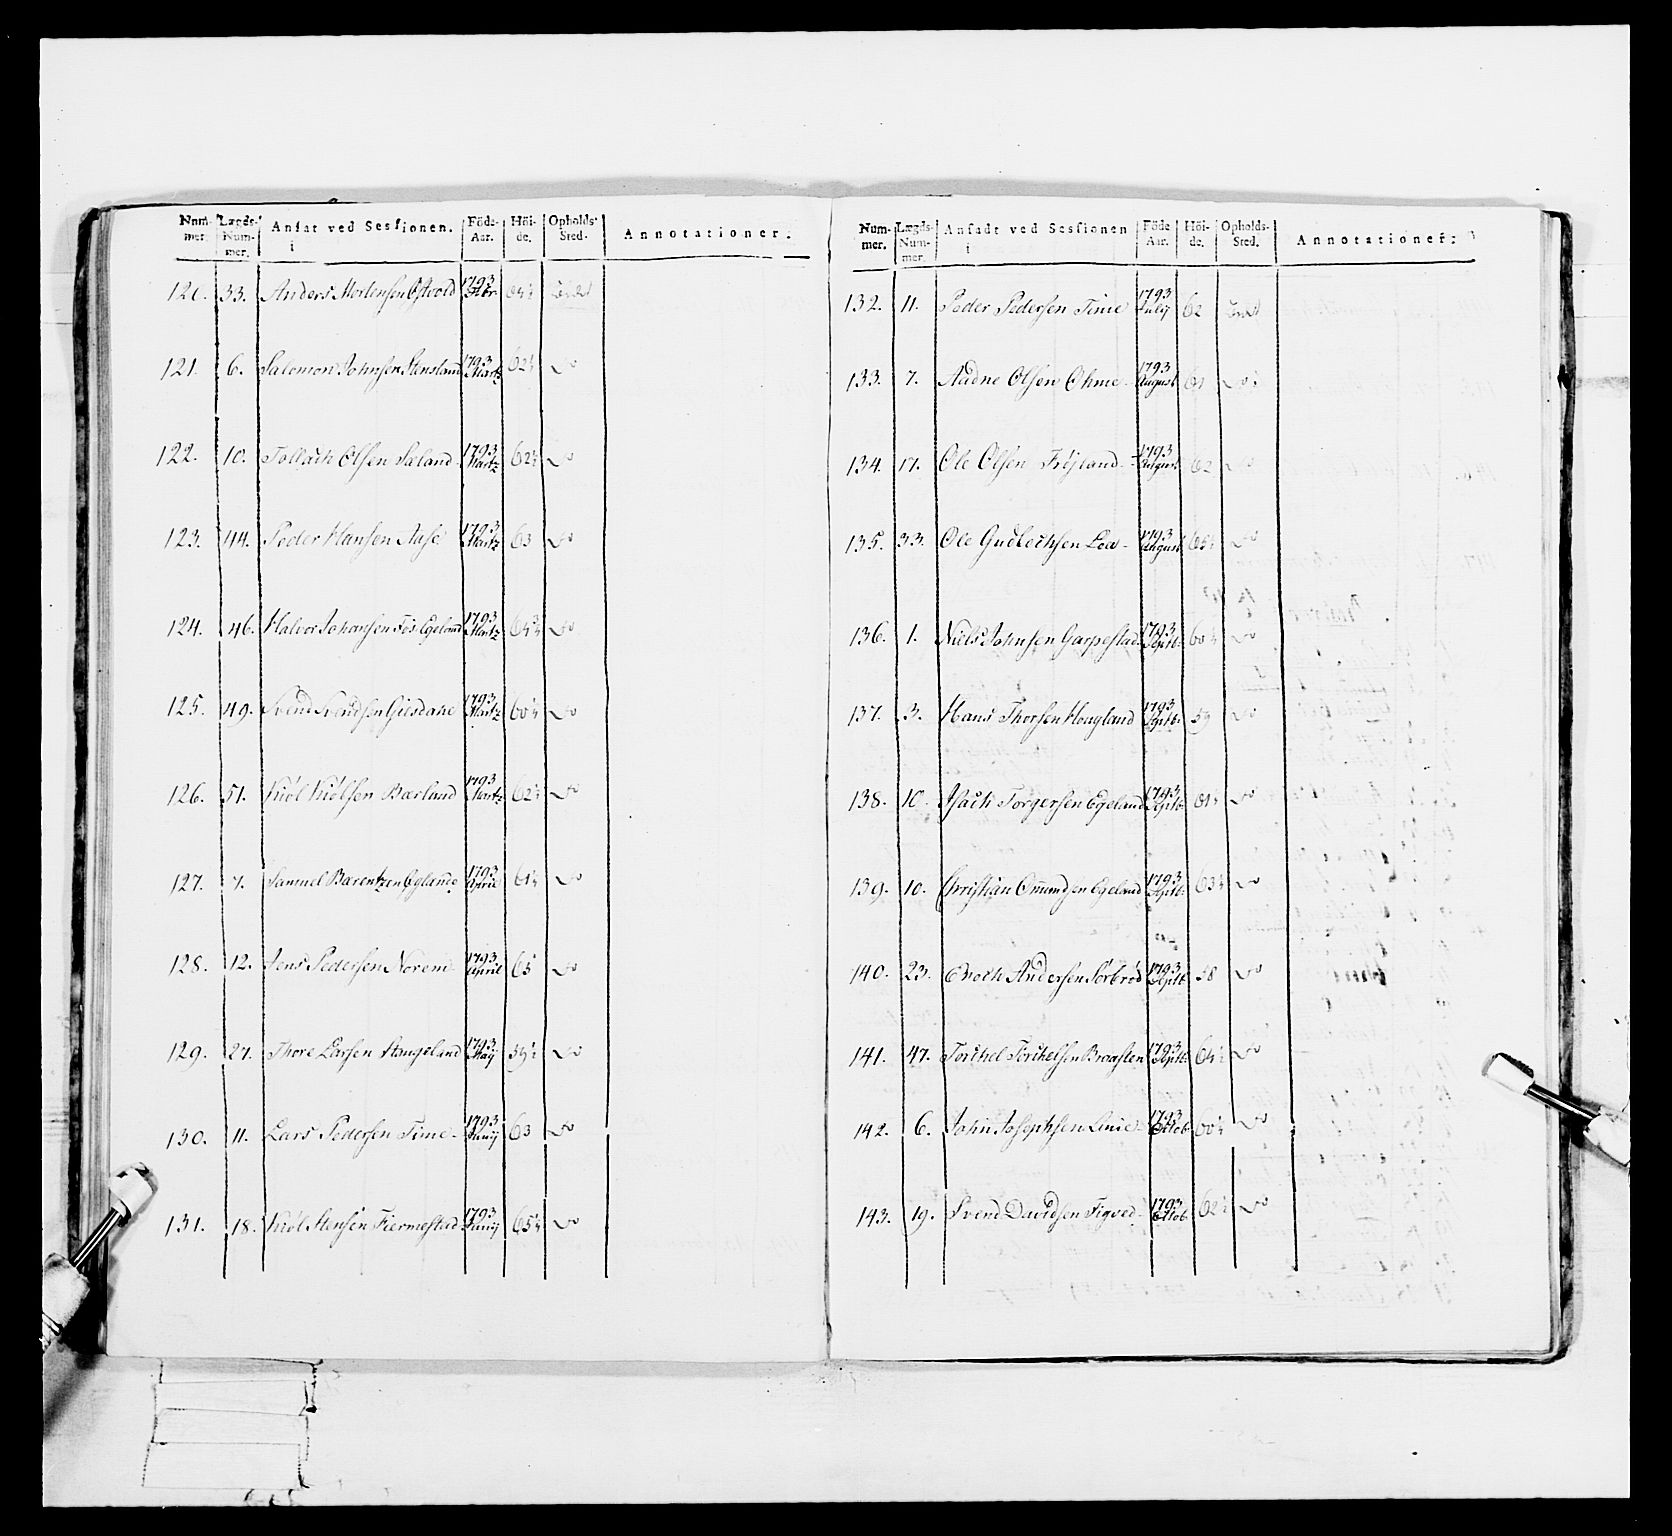 Num- Lægds- Ansat ved Sessionen. Föde- Höi- Opholds- Annotationer.
mer. Num- i Aar. de. Sted.
mer.
120. 33. Anders Mortensen 1793 Febr.
121. 6. Salomon Johnsen Stensland 1793 Martz 62½ do
122. 10. Tollach Olsen Sæland 1793 Martz 62½ do
123. 44. Peder Hansen Aase 1793 Martz 63 do
124. 46. Halvor Johansen Egeland 1793 Martz do
125. 49. Svend Svendsen Giisdahe 1793 Martz 60¼ do
126. 51. Kiöl Kiölsen Bærland 1793 Martz 62½ do
127. 7. Samuel Barentzen Eglande 1793 April 61¼ do
128. 12. Jens Pedersen Norem 1793 April 65 do
129. 27. Thore Larsen Haugeland 1793 May 59½ do
130. 11. Lars Pedersen Time 1793 Juny 63 do
131. 18. Kiöl Stensen Fiermestad 1793 Juny 65¼ do
Num- Lægds- Ansadt ved Sessionen Föde Höi- Opholds- Annotationer:
mer. Num- i Aar. de. Sted.
mer.
132. 11. Peder Pedersen Time 1793 July 62
133. 7. Aadne Olsen Ohme 1793 August 61 do
134. 17. Ole Olsen Fröjland 1793 August 62 do
135. 33. Ole Gudlechsen Lea 1793 August do
136. 1. Niels Johnsen Garpestad 1793 Septb: 60¼ do
137. 3. Hans Thorsen Hougland 1793 Septb: 59 do
138. 10. Isach Torgersen Egeland 1793 Septb: 61½ do
139. 10. Christian Omundsen Egeland 1793 Septb: 63½ do
140. 23. Enoch Andersen Sörbröd 1793 Septb: 58 do
141. 47. Torchel Torchelsen Braasten 1793 Septb: 64½ do
142. 6. John Josephsen Linie 1793 Octob: 60¼ do
143. 19. Svend Davidsen Tigved 1793 Octob: 62½ do